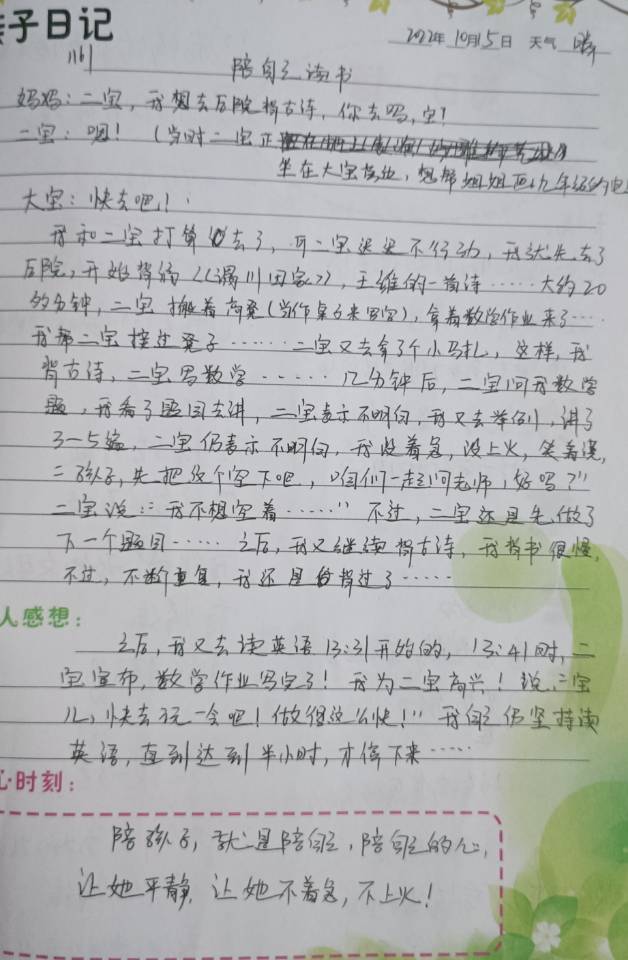 亲子日记
2022年10月15日 天气 晴
1161
陪自己读书
妈妈：二宝，我想去后院背古诗，你去吗，宝！
二宝：嗯！（当时二宝正
坐在大宝旁边，想帮姐姐
大宝：快去吧！
我和二宝打算去了，可二宝迟迟不行动，我就先去了
后院，开始背诵《渭川田家》，王维的一首诗……大约20
多分钟，二宝搬着高凳（当作桌子来写字），拿着数学作业来了……
我帮二宝接过凳子……二宝又去拿了个小马扎，这样，我
背古诗，二宝写数学……几分钟后，二宝问我数学
题，我看了题目去讲，二宝表示不明白，我又去举例，讲了
3－5遍，二宝仍表示不明白，我没着急，没上火，笑着说，
二孩子，先把这个空下吧，咱们一起问老师，好吗？”
二宝说：“我不想空着……”不过，二宝还是先做了
下一个题目……之后，我又继续背古诗，我背书很慢，
不过，不断重复，我还是背过了……
人感想：
之后，我又去读英语13:31开始的，13:41时，二
宝宣布，数学作业写完了！我为二宝高兴！说，二宝
儿，快去玩一会吧！做得这么快！”我自己仍坚持读
英语，直到达到半小时，才停下来……
心时刻：
陪孩子，就是陪自己，陪自己的心，
让她平静，让她不着急，不上火！